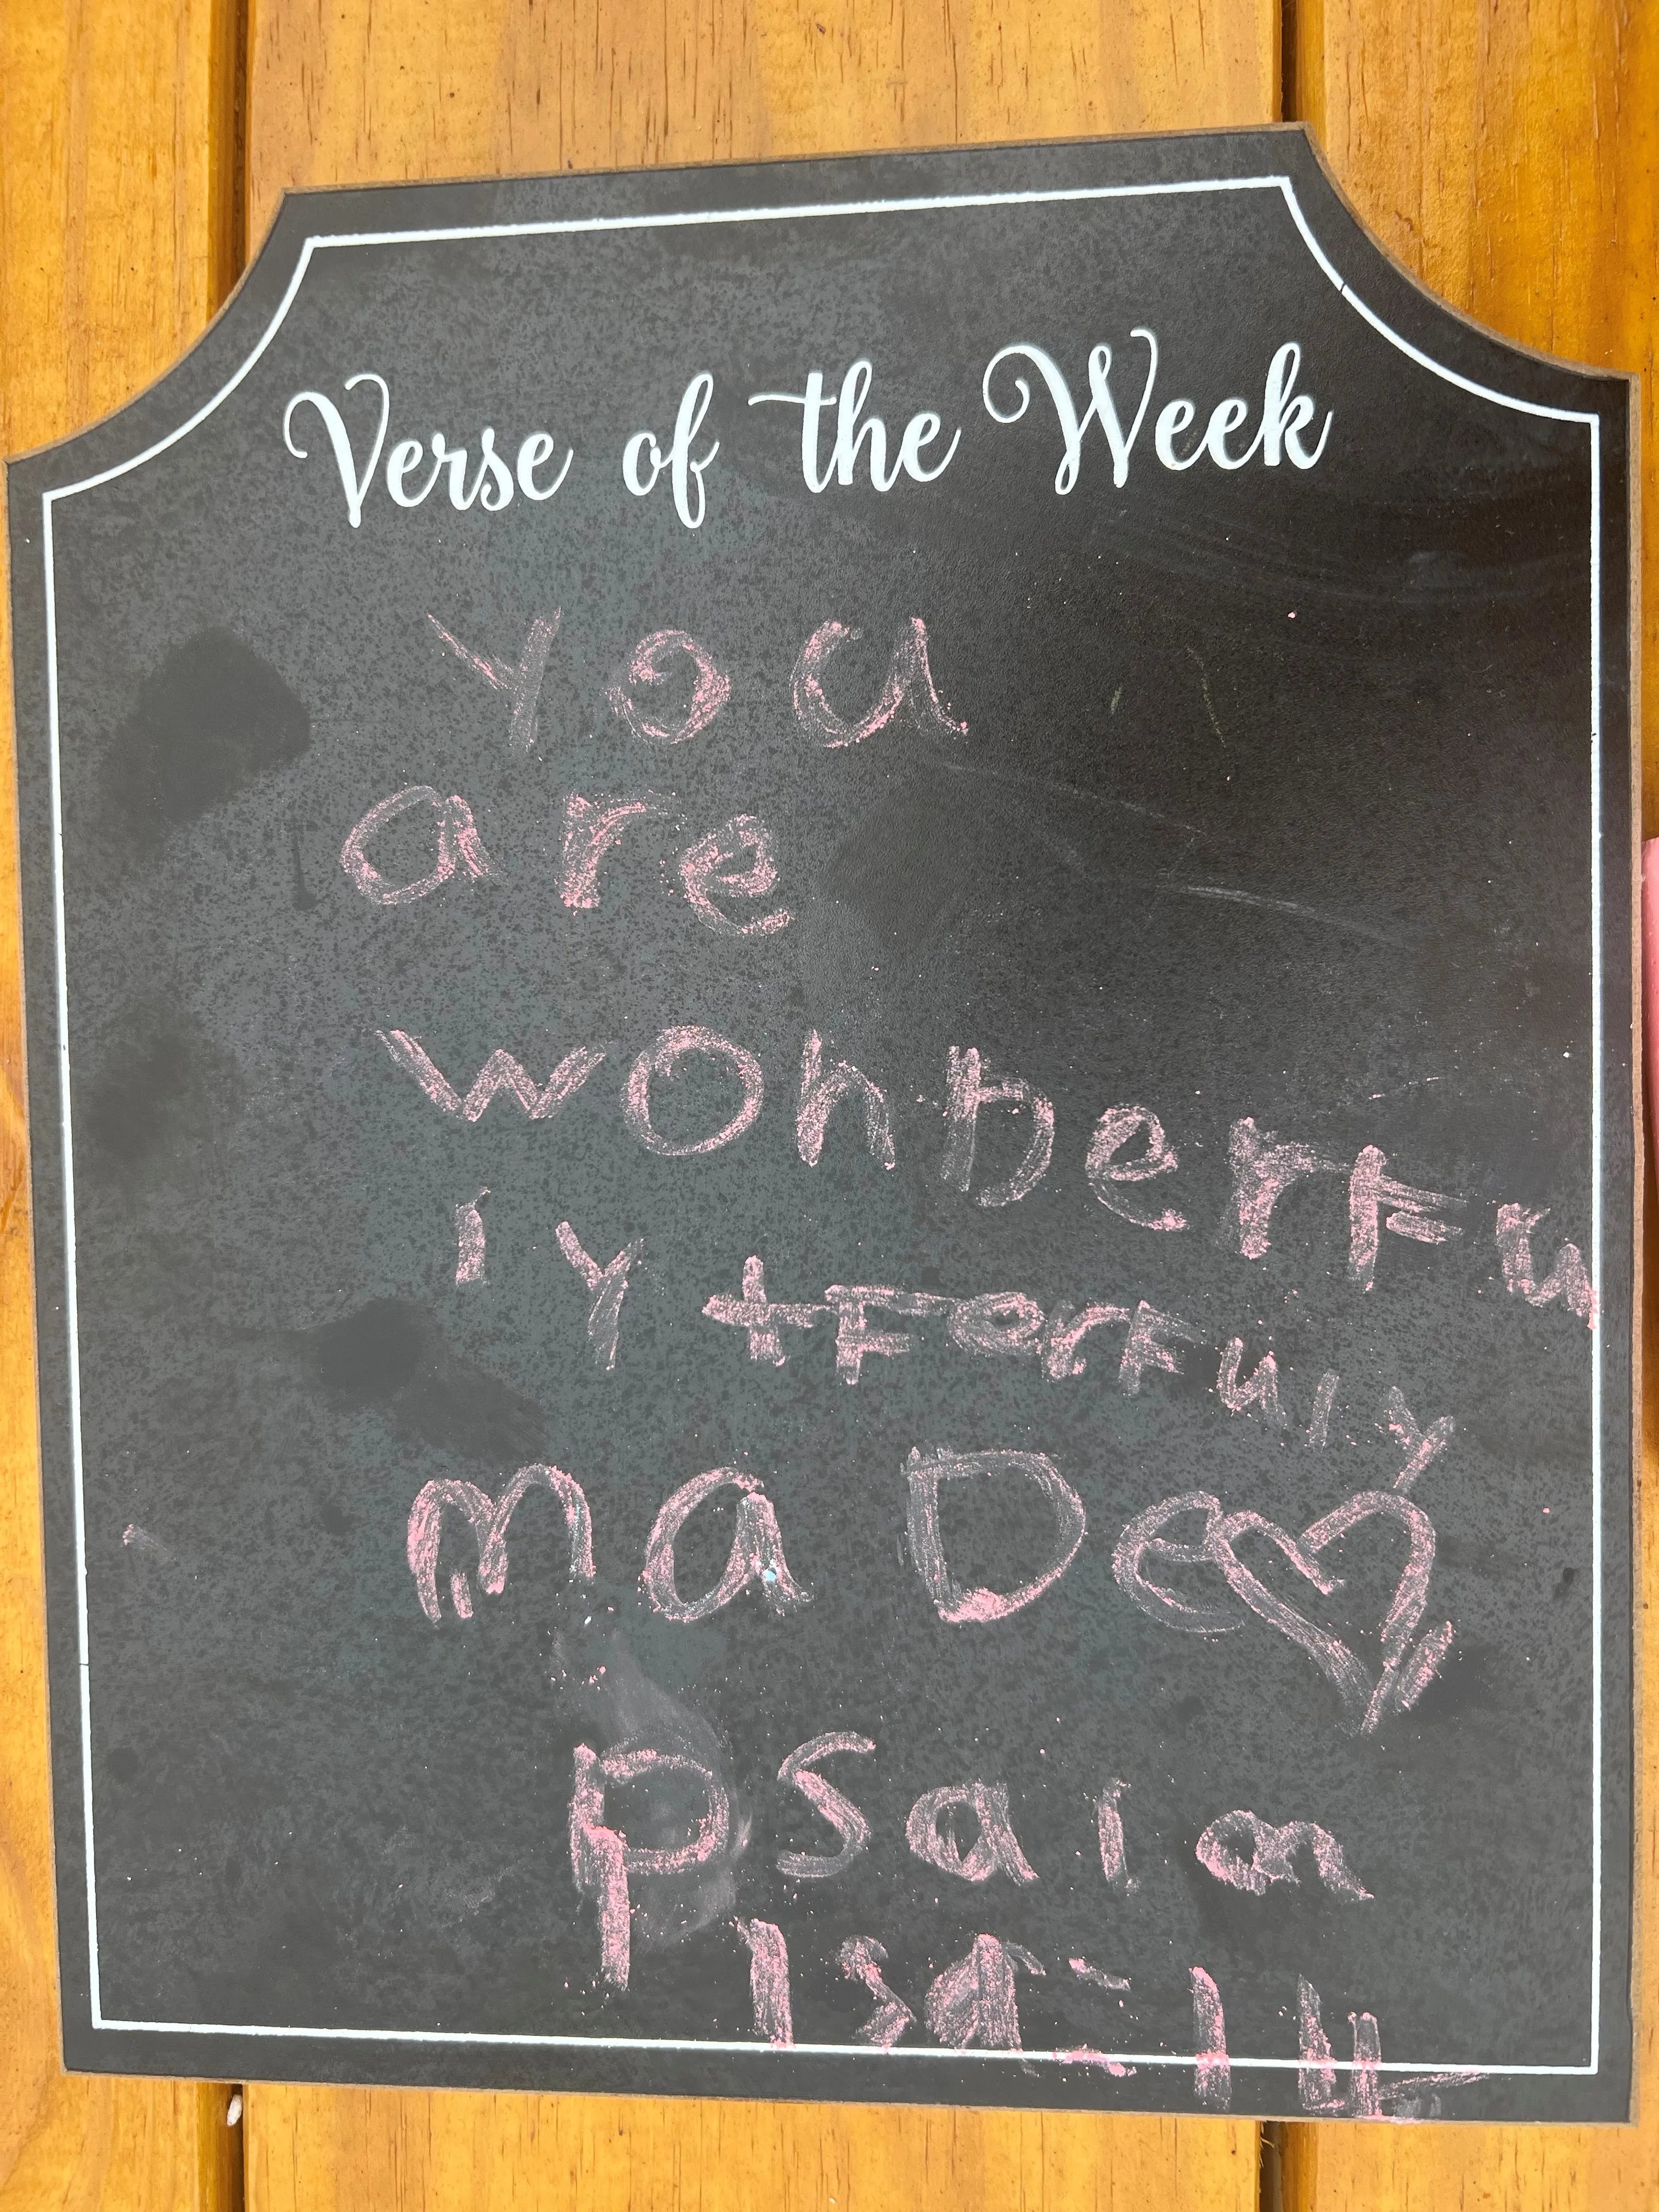 Verse of the Week
you
are
wonDerFu
ly + FerFuly
maDe
psalm
139:14